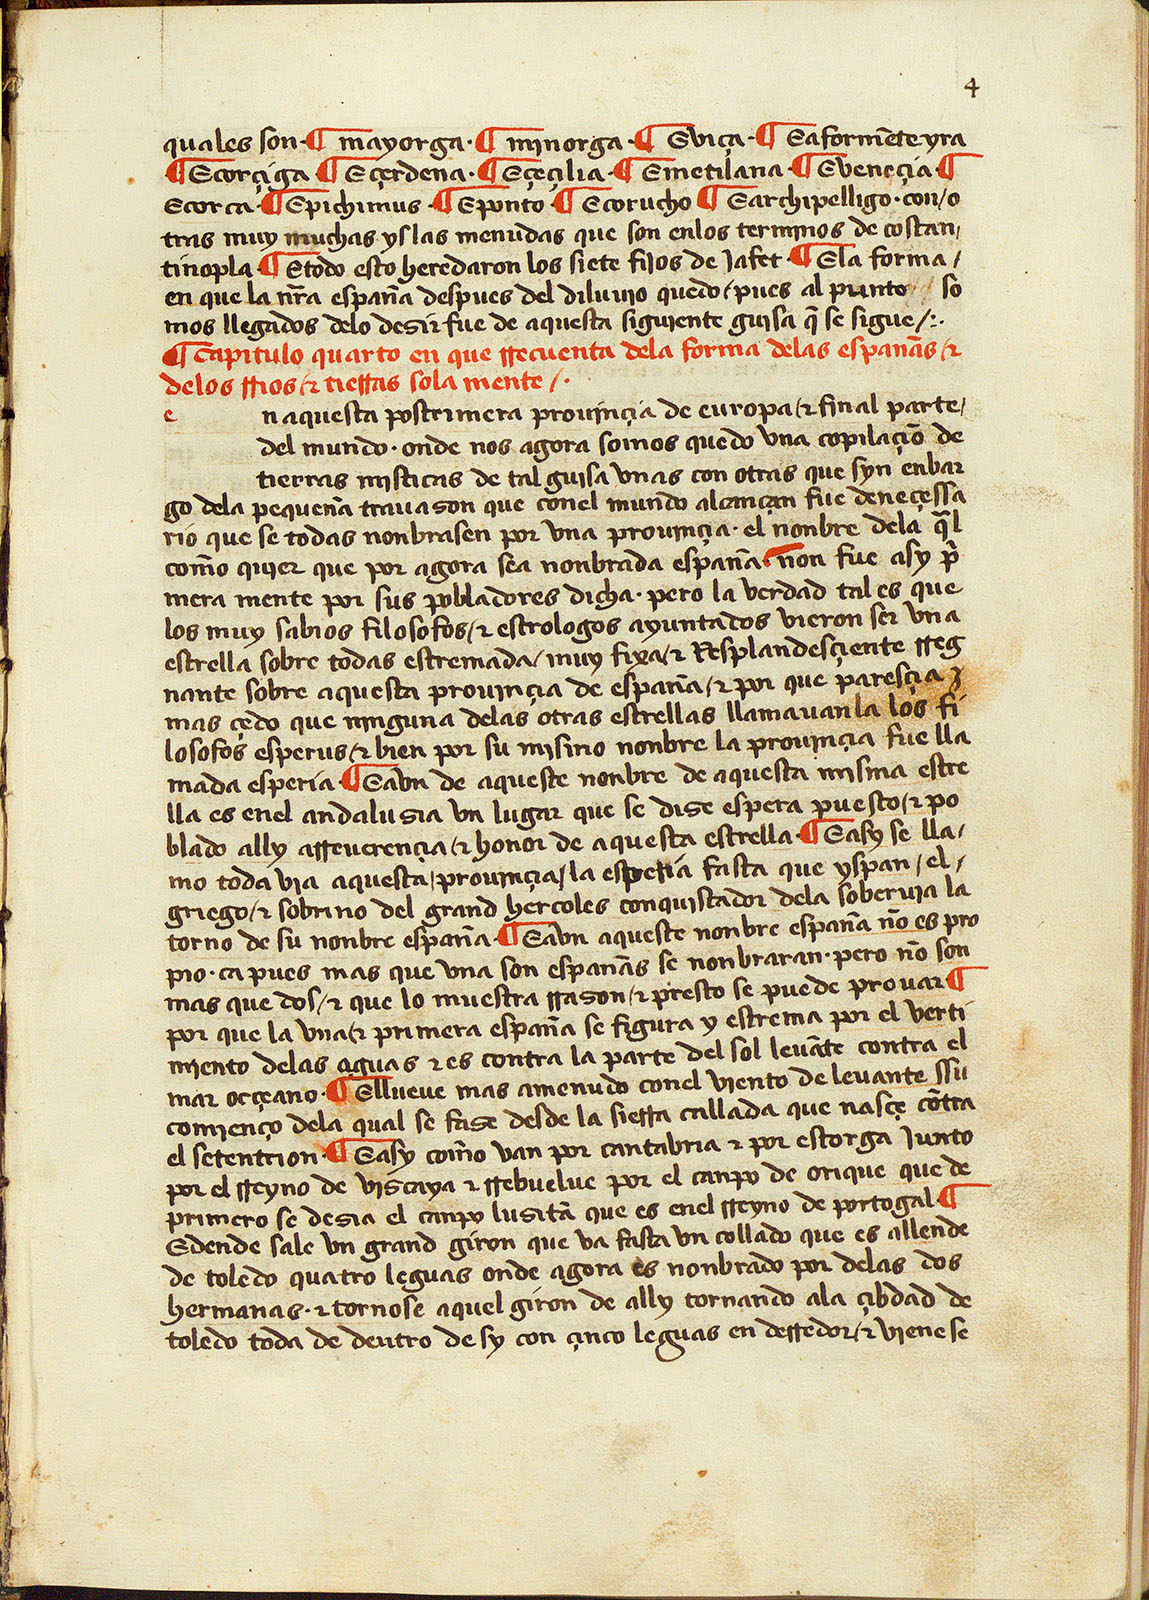 4
quales son · ¶ mayorga · ¶ minorga · ¶ Euiça · ¶ Eaformẽteyra
¶ Ecorçiga ¶ Eçerdena · ¶ Eçeçilia · ¶ Emetilana · ¶ Eueneçia ¶
Ecorca · ¶ Epichimus · ¶ Eponto · ¶ Ecorucho ¶ Earchipelligo · con / o
tras muy muchas yslas menudas que son enlos terminos de costan /
tinopla ¶ Etodo esto heredaron los siete fijos de Jafet · ¶ Ela forma /
en que la nr̃a españa despues del diluuio quedo / pues al punto so
mos llegados delo desir fue de aquesta siguiente guisa q̃ se sigue / : ·
¶ capitulo quarto en que rrecuenta dela forma delas españas / &
delos rrios / & tierras sola mente / ·
e n aquesta postrimera prouinçia de europa / & final parte /
del mundo · onde nos agora somos quedo vna copilaçiõ de
tierras misticas de tal guisa vnas con otras que syn enbar
go dela pequeña trauason que conel mundo alcançan fue deneçessa
rio que se todas nonbrasen por vna prouinçia · el nonbre dela q̃l
com̃o quier que por agora sea nonbrada españa · non fue asy p̃
mera mente por sus pobladores dicha · pero la verdad tal es que
los muy sabios filosofos / & estrologos ayuntados vieron ser vna
estrella sobre todas estremada / muy fixa / & Resplandesçiente rreg
nante sobre aquesta prouinçia de españa / & por que paresçia
mas çedo que ninguna delas otras estrellas llamauanla los fi
losofos esperus / & bien por su mismo nonbre la prouinçia fue lla
mada esperia · ¶ Eavn de aqueste nonbre de aquesta misma estre
lla es enel andalusia vn lugar que se dise espera puesto / & po
blado ally arreuerençia / & honor de aquesta estrella · ¶ Easy se lla /
mo toda via aquesta / prouinçia / la esperia fasta que yspan / el /
griego / & sobrino del grand hercoles conquistador dela soberuia la
torno de su nonbre españa · ¶ Eavn aqueste nonbre españa nõ es pro
pio · ca pues mas que vna son españas se nonbraran · pero nõ son
mas que dos / & que lo muestra rrason / & presto se puede prouar ¶
por que la vna / & primera españa se figura y estrema por el verti
miento delas aguas & es contra la parte del sol leuãte contra el
mar occeano · ¶ Ellueue mas amenudo conel viento de leuante ssu
comienço dela qual se fase desde la sierra callada que nasçe cõtra
el setentrion · ¶ Easy com̃o van por cantabria & por estorga Junto
por el rreyno de viscaya & rrebuelue por el canpo de orique que de
primero se desia el canpo lusitã que es enel rreyno de portogal ¶
Edende sale vn grand giron que va fasta vn collado que es allende
de toledo quatro leguas onde agora es nonbrado por delas dos
hermanas · & tornose aquel giron de ally tornando ala çibdad de
toledo toda de dentro de sy con çinco leguas en derredor / & viene se